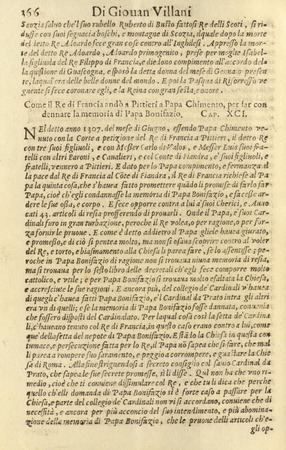 166 Di Giouan Villani
Scozia saluo che'l suo rubello Roberto di Busto fattosi Re delli Scoti, si ri-
dusse con suoi seguaci a boschi, e montagne di Scozia, il quale dopo la morte
del detto Re Adoardo fece gran cose contro all'Inghilesi. Appresso la mor-
te del detto Re Adoardo, Adoardo primogenito, prese per moglie Isabel-
la figliuola del Re Filippo di Francia, e diedono compimento all'accordo del-
la quistione di Guascogna, e sposò la detta donna del mese di Gennaio presen-
te, laqual era delle belle donne del mondo. E poi la Pasqua di Risorresso ve-
gnente si fece coronare egli, e la Reina con gran festa, e onore.
Come il Re di Francia andò a Pittieri a Papa Chimento, per far con
dennare la memoria di Papa Bonifazio, CAP. XCI.
NEl detto anno 1307. del mese di Giugno, essendo Papa Chimento ve-
nuto con la Corte a petizione del Re di Francia a Pittieri, il detto Re
con tre suoi figliuoli, e con Messer Carlo de Valos, e Messer Luis suoi fra-
telli con altri Baroni, e Caualieri, e col Conte di Fiandra, e' suoi figliuoli, e
fratelli, vennero a Pittieri. E dato per lo Papa compimento, e fermezza di
la pace dal Re di Francia al Côte di Fiandra, il Re di Francia richiese al Pa
pa la quinta cosa, che l'hauea fatto promettere quādo li promise di farlo far
Papa, cioè ch'egli condannasse la memoria di Papa Bonifazio, e far cose ar-
dere le sue ossa, e corpo. E fece opporre contra lui a suoi Cherici, e Auo-
cati 43. articoli di resia profferendo di prouarli. Onde il Papa, e suoi Car
dinali furo in gran turbazione, peroche il Re volea, o per ragione, o per for-
za fornirle pruoue. E come è detto addietro il Papa gliele hauea giurato,
e promesso, e di ciò si pentea molto, ma non s'ausaua scoprire contro al voler
del Re, e torto, e biasimamento alla Chiesa li parea fare, se lo assentisse, pe-
roche in Papa Bonifazio di ragione non si trouaua niuna memoria di resia,
ma si trouaua per lo sesto libro delle decretali ch'egli fece comporre molto
catolico, e vtile; e per Papa Bonifazio si trouaua molto esaltata la Chiesa,
e accresciute le sue ragioni. E ancora più, del collegio de' Cardinali v'hauea
di quegli c'hauea fatti Papa Bonifazio, e'l Cardinal da Prato intra gli altri
era vn di quelli; e se la memoria di Papa Bonifazio fosse dannata, conuenia
che fussero disposti del Cardinalato. Per laqual cosa così la setta de' Cardina
li, c'haueano tenuto col Re di Francia, in questo caso erano contro a lui, come
que' della setta del nepote di Papa Bonifazio. E stādo la Chiesa in questa con
tumace, e persecuzione fatta per lo Re, al Papa nō sapea che si fare, che mal
li parea a rompere suo saramento, e peggio a corrompere, e guastare la Chie
sa di Roma. Alla fine stringendosi a secreto consiglio col sauio Cardinal da
Prato, che sapea le sue secrete promesse, li disse. Qui non ha che vno ri-
medio, cioè che ti conuiene dissimulare col Re, e che tu li dica che perche
quello ch'elli domanda di Papa Bonifazio si è forte caso a passare per la
Chiesa, e parte del collegio de' Cardinali non vi si accordano, conuiene che di
necessità, e ancora per più acconcio del suo intendimento, e più abomina-
zione della memoria di Papa Bonifazio, che le pruoue delli articoli ch'e-
gli op-